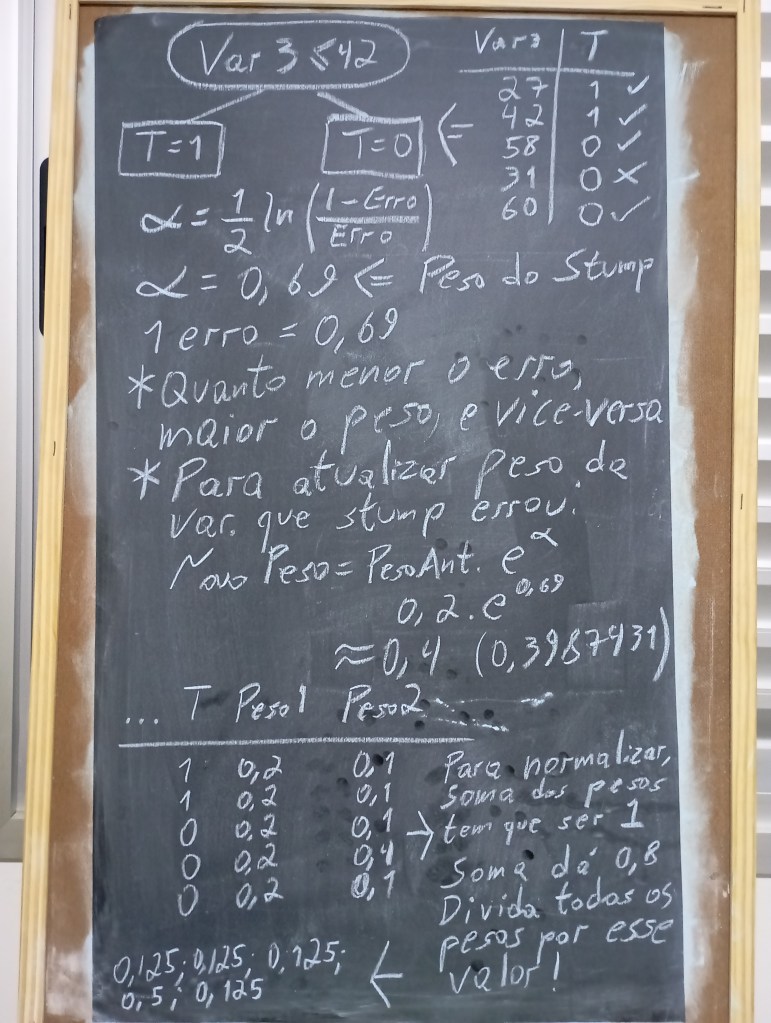 Var 3 ≤ 42
T=1
T=0 ⇐
Var3 | T
27 1 ✓
42 1 ✓
58 0 ✓
31 0 ✗
60 0 ✓
α = 1/2 ln (1-Erro/Erro)
α = 0,69 ⇐ Peso do Stump
1 erro = 0,69
*Quanto menor o erro,
maior o peso, e vice-versa
*Para atualizar peso da
var. que stump errou:
Novo Peso = PesoAnt. e^α
0,2 . e^0,69
≈ 0,4 (0,3987431)
... T Peso1 Peso2
1 0,2 0,1
1 0,2 0,1
0 0,2 0,1 →
0 0,2 0,4
0 0,2 0,1
Para normalizar,
soma dos pesos
tem que ser 1
Soma dá 0,8
Divida todos os
pesos por esse
valor!
0,125; 0,125; 0,125; ←
0,5; 0,125